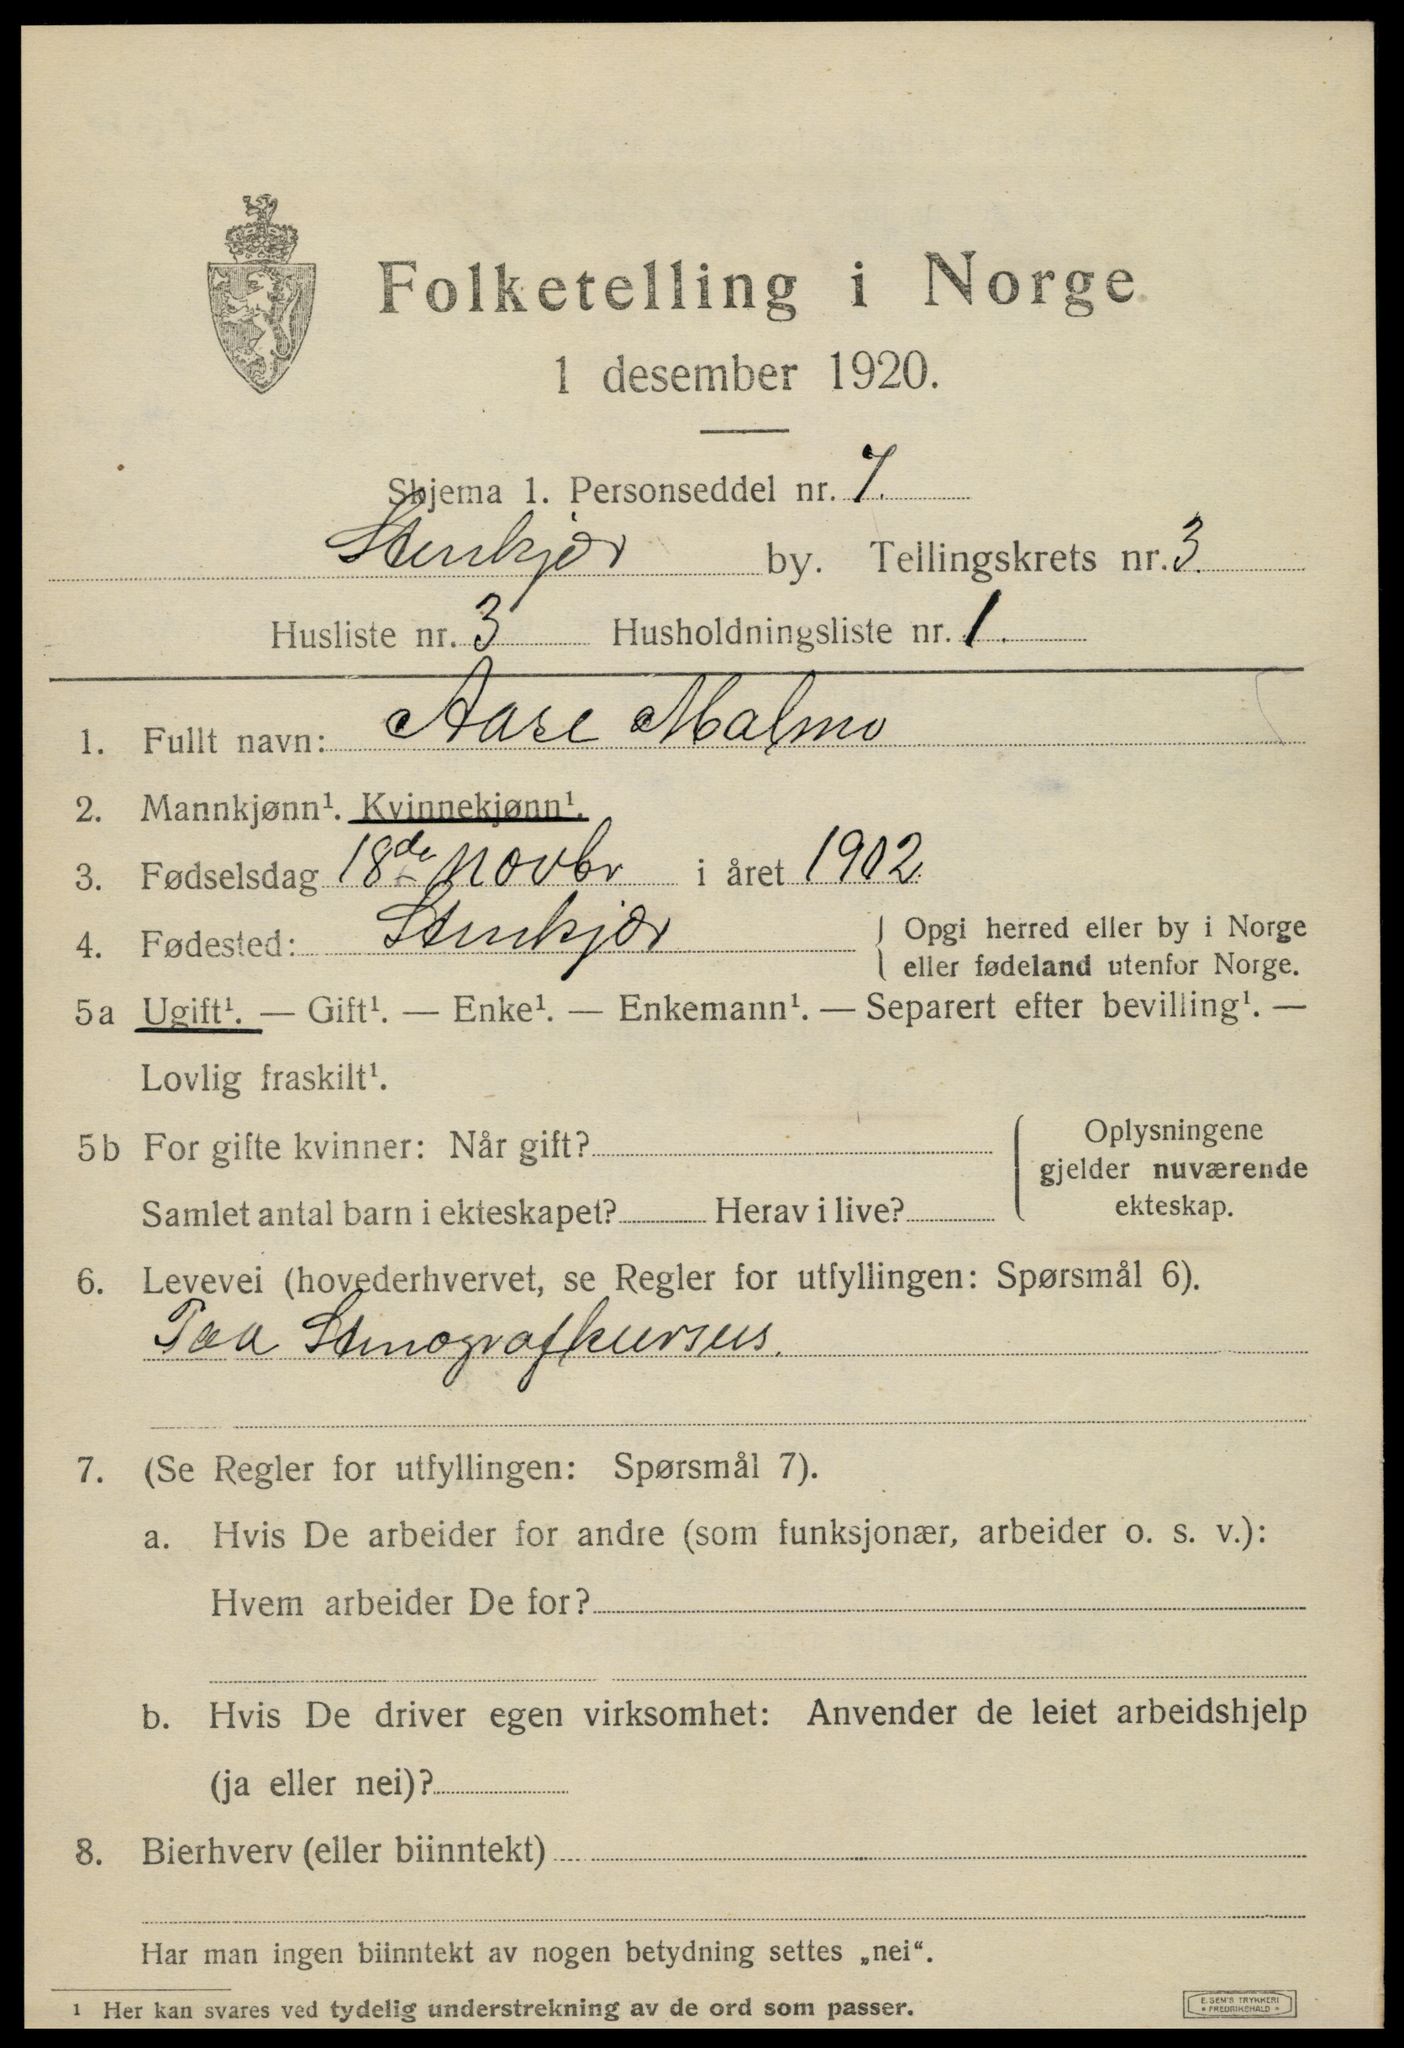 Folketelling i Norge
1 desember 1920.
Skjema 1. Personseddel nr. 7.
Stenkjær by. Tellingskrets nr. 3.
Husliste nr. 3 Husholdningsliste nr. 1.
1. Fullt navn: Aase Malmo
2. Mannkjønn¹. Kvinnekjønn¹.
3. Fødselsdag 18de novbr i året 1902.
4. Fødested: Stenkjær { Opgi herred eller by i Norge
eller fødeland utenfor Norge.
5a Ugift¹. — Gift¹. — Enke¹. — Enkemann¹. — Separert efter bevilling¹. —
Lovlig fraskilt¹.
5b For gifte kvinner: Når gift?
Samlet antal barn i ekteskapet? Herav i live?
Oplysningene
gjelder nuværende
ekteskap.
6. Levevei (hovederhvervet, se Regler for utfyllingen: Spørsmål 6).
Paa Stenografkursus.
7. (Se Regler for utfyllingen: Spørsmål 7).
a. Hvis De arbeider for andre (som funksjonær, arbeider o. s. v.):
Hvem arbeider De for?
b. Hvis De driver egen virksomhet: Anvender de leiet arbeidshjelp
(ja eller nei)?
8. Bierhverv (eller biinntekt)
Har man ingen biinntekt av nogen betydning settes „nei“.
1 Her kan svares ved tydelig understrekning av de ord som passer.
E. SEM'S TRYKKERI
* FREDRIKSHALD *